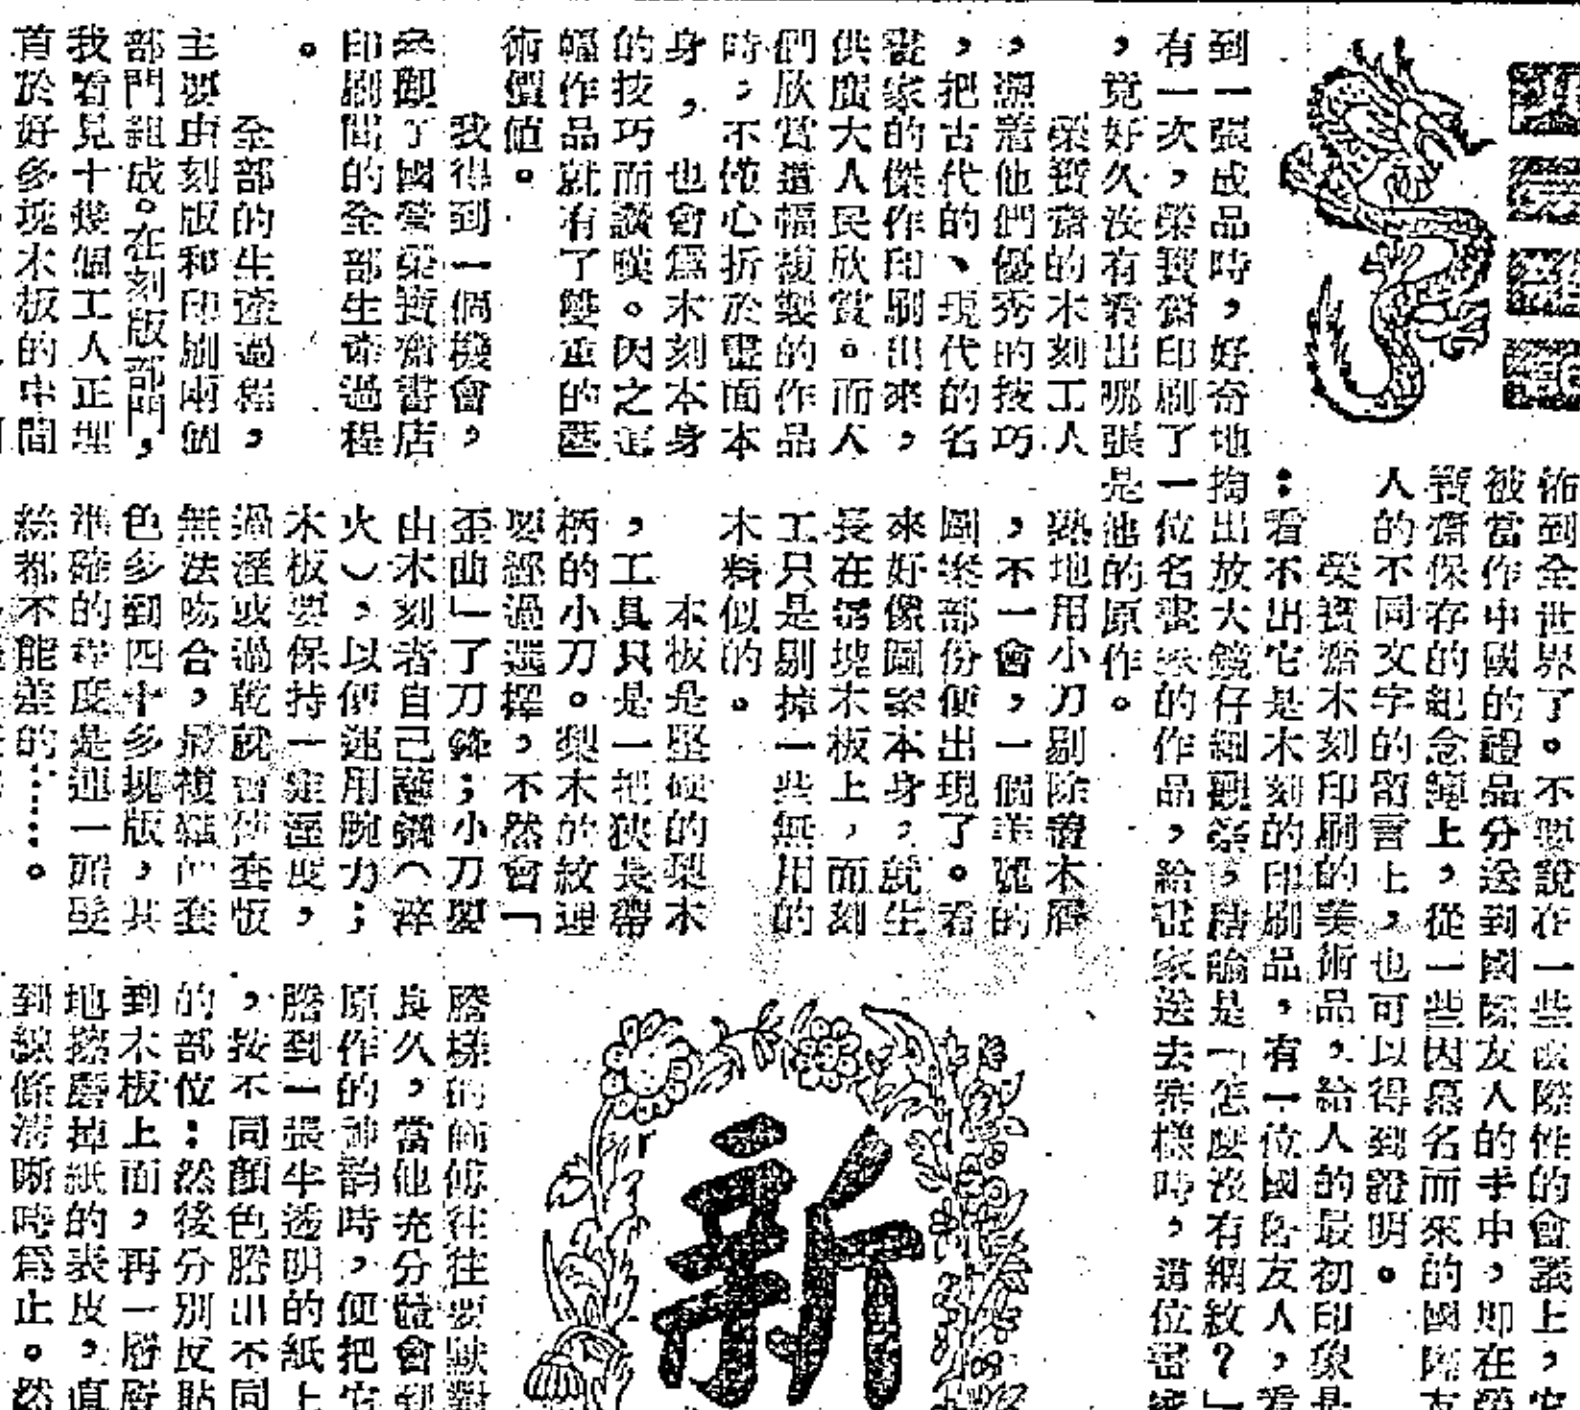 佈到全世界了。不要說在一些國際性的會議上，它
被當作中國的禮品分送到國際友人的手中，即在榮
寶齋保存的紀念簿上，從一些因慕名而來的國際友
人的不同文字的留言上，也可以得到證明。
榮寶齋木刻印刷的美術品，給人的最初印象是
：看不出它是木刻的印刷品，有一位國際友人，看
到一張成品時，好奇地掏出放大鏡仔細觀察，結論是「怎麼沒有網紋？」
有一次，榮寶齋印刷了一位名畫家的作品，給畫家送去案樣時，這位畫家
，竟好久沒有看出哪張是他的原作。
榮寶齋的木刻工人
，憑着他們優秀的技巧
，把古代的、現代的名
畫家的傑作印刷出來，
供廣大人民欣賞。而人
們欣賞這幅複製的作品
時，不僅心折於畫面本
身，也會爲木刻本身
的技巧而讚嘆。因之這
幅作品就有了雙重的藝
術價值。
我得到一個機會，
參觀了國營榮寶齋書店
印刷間的全部生產過程
。
全部的生產過程，
主要由刻版和印刷兩個
部門組成。在刻版部門，
我看見十幾個工人正埋
首於好多塊木板的中間
熟地用小刀剔除着木屑
，不一會，一個美麗的
圖案部份便出現了。看
來好像圖案本身，就生
長在這塊木板上，而刻
工只是剔掉一些無用的
木料似的。
木板是堅硬的梨木
，工具只是一把狹長帶
柄的小刀。梨木的紋理
要經過選擇，不然會「
歪曲」了刀鋒；小刀要
由木刻者自己（淬
火），以便運用腕力；
木板要保持一定溼度，
過溼或過乾就會使套版
無法吻合，最複雜的套
色多到四十多塊版，其
準確的程度是連一點髮
絲都不能差的……。
新
謄樣的師傅往往要默對
良久，當他充分體會到
原作的神韵時，便把它
謄到一張半透明的紙上
，按不同顏色謄出不同
的部位：然後分別反貼
到木板上面，再一層層
地擦磨掉紙的表皮，直
到線條清晰時爲止。然